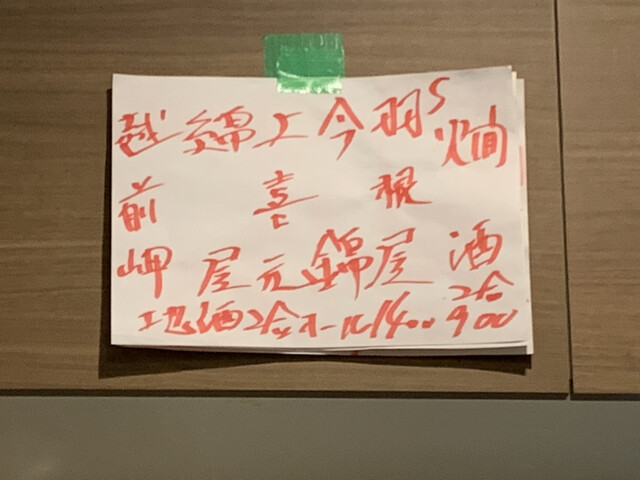 燗酒
2合
900
羽根屋
今錦
上喜元
綿屋
越前岬
地酒2合オール1400